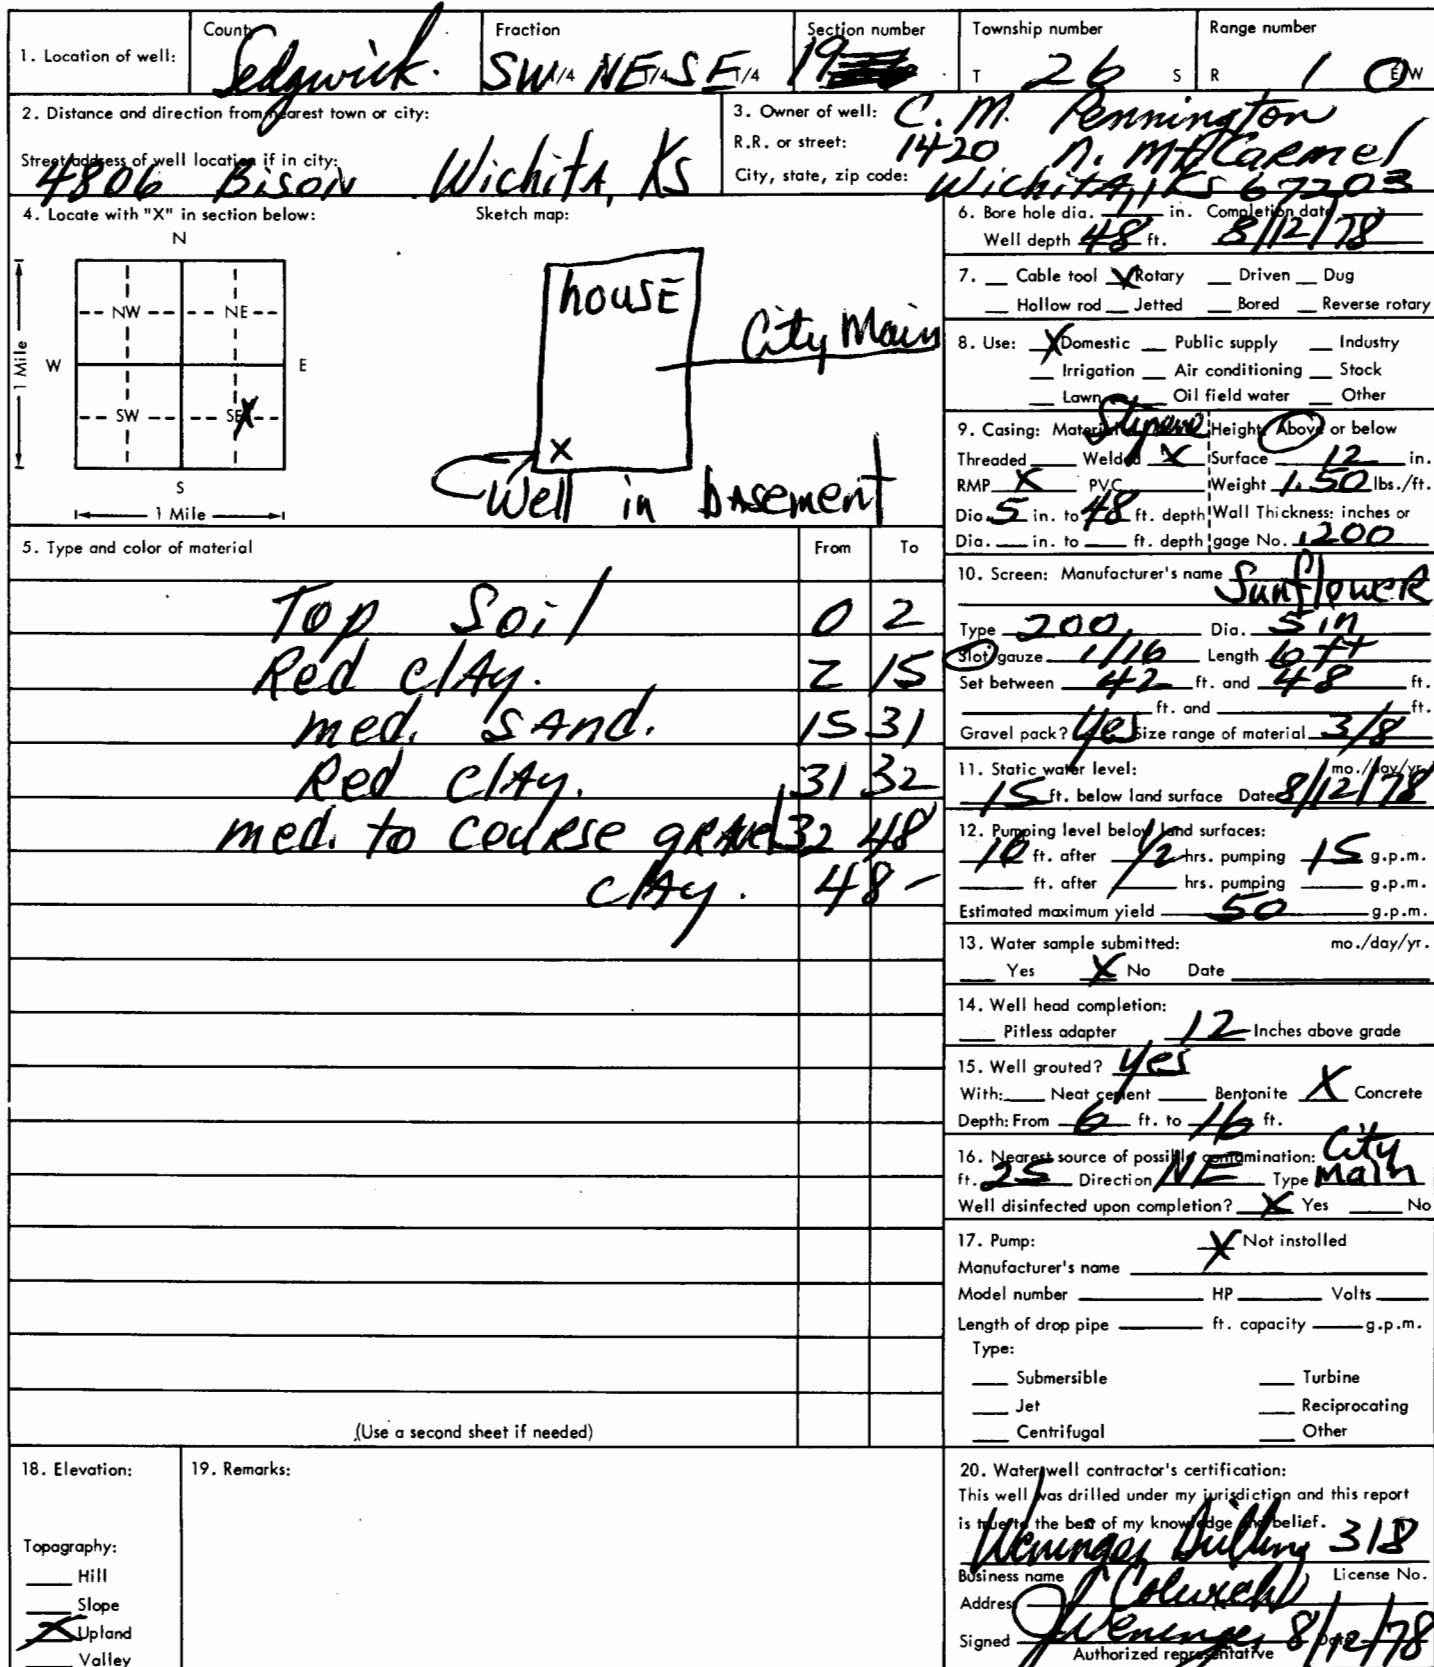 1. Location of well: County Sedgwick. Fraction SW 1/4 NE 1/4 SE 1/4 Section number 19 Township number T 26 S Range number R 1 E W
2. Distance and direction from nearest town or city:
Street address of well location if in city:
4806 Bison Wichita, KS
3. Owner of well: C. M. Pennington
R.R. or street: 1420 N. Mt Carmel
City, state, zip code: Wichita, KS 67203
4. Locate with "X" in section below:
N
NW NE
W E
SW SE X
S
1 Mile
1 Mile
Sketch map:
house
City Main
X
Well in basement
5. Type and color of material From To
Top Soil 0 2
Red clay. 2 15
med. sand. 15 31
Red clay. 31 32
med. to course gravel 32 48
clay. 48 -
(Use a second sheet if needed)
6. Bore hole dia. in. Completion date
Well depth 48 ft. 8/12/78
7. Cable tool X Rotary Driven Dug
Hollow rod Jetted Bored Reverse rotary
8. Use: X Domestic Public supply Industry
Irrigation Air conditioning Stock
Lawn Oil field water Other
9. Casing: Material Styrene Height: Above or below
Threaded Welded X Surface 12 in.
RMP X PVC Weight 1.50 lbs./ft.
Dia. 5 in. to 48 ft. depth Wall Thickness: inches or
Dia. in. to ft. depth gage No. .200
10. Screen: Manufacturer's name Sunflower
Type 200 Dia. 5 in
Slot gauze 1/16 Length 6 ft
Set between 42 ft. and 48 ft.
ft. and ft.
Gravel pack? Yes Size range of material 3/8
11. Static water level: mo./day/yr.
15 ft. below land surface Date 8/12/78
12. Pumping level below land surfaces:
10 ft. after 1/2 hrs. pumping 15 g.p.m.
ft. after hrs. pumping g.p.m.
Estimated maximum yield 50 g.p.m.
13. Water sample submitted: mo./day/yr.
Yes X No Date
14. Well head completion:
Pitless adapter 12 Inches above grade
15. Well grouted? Yes
With: Neat cement Bentonite X Concrete
Depth: From 6 ft. to 16 ft.
16. Nearest source of possible contamination: City
ft. 25 Direction NE Type Main
Well disinfected upon completion? X Yes No
17. Pump: X Not installed
Manufacturer's name
Model number HP Volts
Length of drop pipe ft. capacity g.p.m.
Type:
Submersible Turbine
Jet Reciprocating
Centrifugal Other
18. Elevation:
Topography:
Hill
Slope
X Upland
Valley
19. Remarks:
20. Water well contractor's certification:
This well was drilled under my jurisdiction and this report
is true to the best of my knowledge and belief.
Weninger Drilling 318
Business name License No.
Address Colwich
Signed J Weninger 8/12/78 Date
Authorized representative